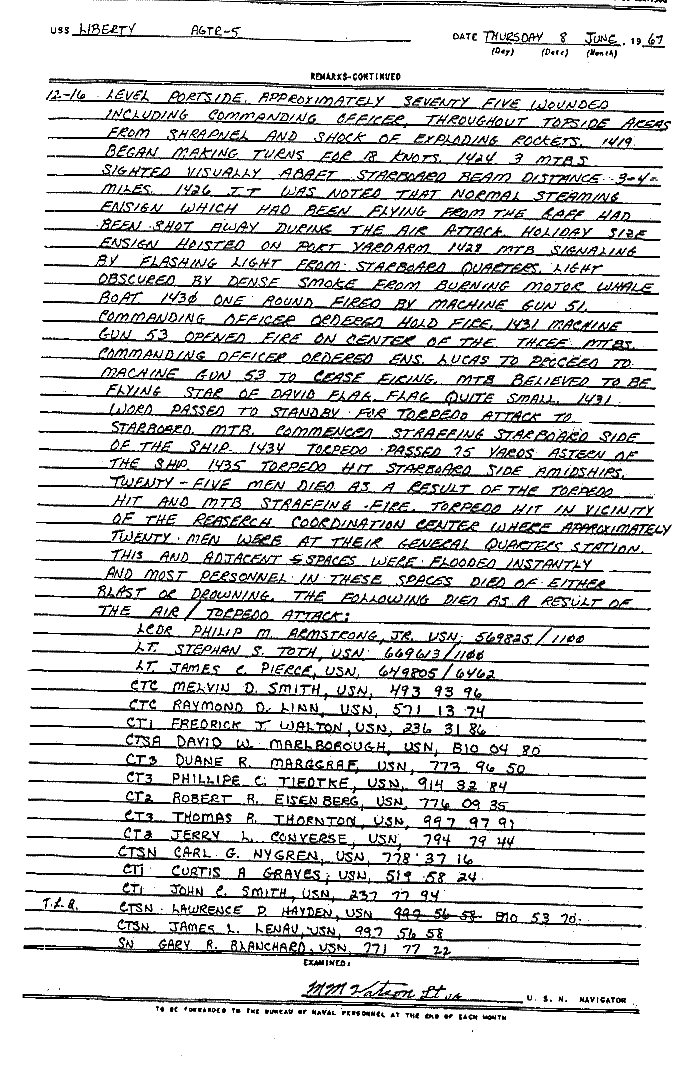 USS LIBERTY AGTR-5 DATE THURSDAY 8 JUNE, 1967
(Day) (Date) (Month)
REMARKS-CONTINUED
12-16 LEVEL PORTSIDE. APPROXIMATELY SEVENTY FIVE WOUNDED
INCLUDING COMMANDING OFFICER, THROUGHOUT TOPSIDE AREAS
FROM SHRAPNEL AND SHOCK OF EXPLODING ROCKETS. 1419
BEGAN MAKING TURNS FOR 18 KNOTS. 1424 3 MTBS
SIGHTED VISUALLY ABAFT STARBOARD BEAM DISTANCE 3-4
MILES. 1426 IT WAS NOTED THAT NORMAL STEAMING
ENSIGN WHICH HAD BEEN FLYING FROM THE GAFF HAD
BEEN SHOT AWAY DURING THE AIR ATTACK. HOLIDAY SIZE
ENSIGN HOISTED ON PORT YARDARM. 1428 MTB SIGNALING
BY FLASHING LIGHT FROM STARBOARD QUARTERS. LIGHT
OBSCURED BY DENSE SMOKE FROM BURNING MOTOR WHALE
BOAT 1430 ONE ROUND FIRED BY MACHINE GUN 51.
COMMANDING OFFICER ORDERED HOLD FIRE. 1431 MACHINE
GUN 53 OPENED FIRE ON CENTER OF THE THREE MTBS.
COMMANDING OFFICER ORDERED ENS. LUCAS TO PROCEED TO
MACHINE GUN 53 TO CEASE FIRING. MTB BELIEVED TO BE
FLYING STAR OF DAVID FLAG. FLAG QUITE SMALL. 1431
WORD PASSED TO STANDBY FOR TORPEDO ATTACK TO
STARBOARD. MTB. COMMENCED STRAFFING STARBOARD SIDE
OF THE SHIP. 1434 TORPEDO PASSED 75 YARDS ASTERN OF
THE SHIP. 1435 TORPEDO HIT STARBOARD SIDE AMIDSHIPS.
TWENTY-FIVE MEN DIED AS A RESULT OF THE TORPEDO
HIT AND MTB STRAFFING FIRE. TORPEDO HIT IN VICINITY
OF THE REASERCH COORDINATION CENTER WHERE APPROXIMATELY
TWENTY MEN WERE AT THEIR GENERAL QUARTERS STATION.
THIS AND ADJACENT SPACES WERE FLOODED INSTANTLY
AND MOST PERSONNEL IN THESE SPACES DIED OF EITHER
BLAST OR DROWNING. THE FOLLOWING DIED AS A RESULT OF
THE AIR / TORPEDO ATTACK:
LCDR PHILIP M. ARMSTRONG, JR. USN, 569825/1100
LT. STEPHAN S. TOTH, USN, 669613/1100
LT JAMES C. PIERCE, USN, 649805/6462
CTC MELVIN D. SMITH, USN, 493 93 96
CTC RAYMOND D. LINN, USN, 571 13 74
CT1 FREDRICK J WALTON, USN, 236 31 86
CTSA DAVID W. MARLBOROUGH, USN, B10 04 80
CT3 DUANE R. MARGGRAF, USN, 773 96 50
CT3 PHILLIPE C. TIEDTKE, USN, 914 32 84
CT2 ROBERT R. EISENBERG, USN, 776 09 35
CT3 THOMAS R. THORNTON, USN, 997 97 91
CT3 JERRY L. CONVERSE, USN, 794 79 44
CTSN CARL G. NYGREN, USN, 778 37 16
CT1 CURTIS A GRAVES, USN, 519 58 24
CT1 JOHN C. SMITH, USN, 237 77 94
CTSN LAWRENCE P. HAYDEN, USN 997 56 58 B10 53 70
CTSN JAMES L. LENAU, USN, 997 56 58
SN GARY R. BLANCHARD, USN, 771 77 22
EXAMINED:
U. S. N. NAVIGATOR
TO BE FORWARDED TO THE BUREAU OF NAVAL PERSONNEL AT THE END OF EACH MONTH